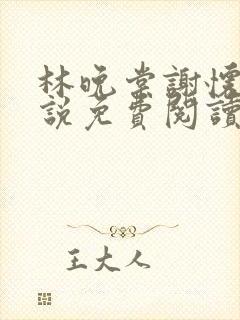 林晚棠謝懷
說免費閱讀
王大人